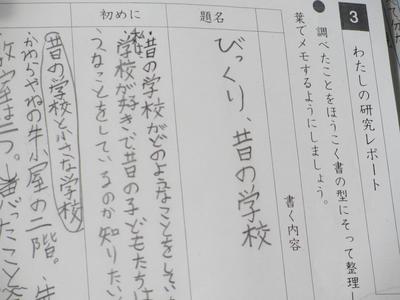 3
わたしの研究レポート
調べたことをほうこく書の型にそって整理し
葉でメモするようにしましょう。
書く内容
題名
びっくり、昔の学校
初めに
昔の学校がどのようなことをしてい
学校が好きで昔の子どもたちは
うなことをしているのか知りたい
昔の学校と小さな学校
かわらやねの牛小屋の二階。
教室は二つ。
たこと